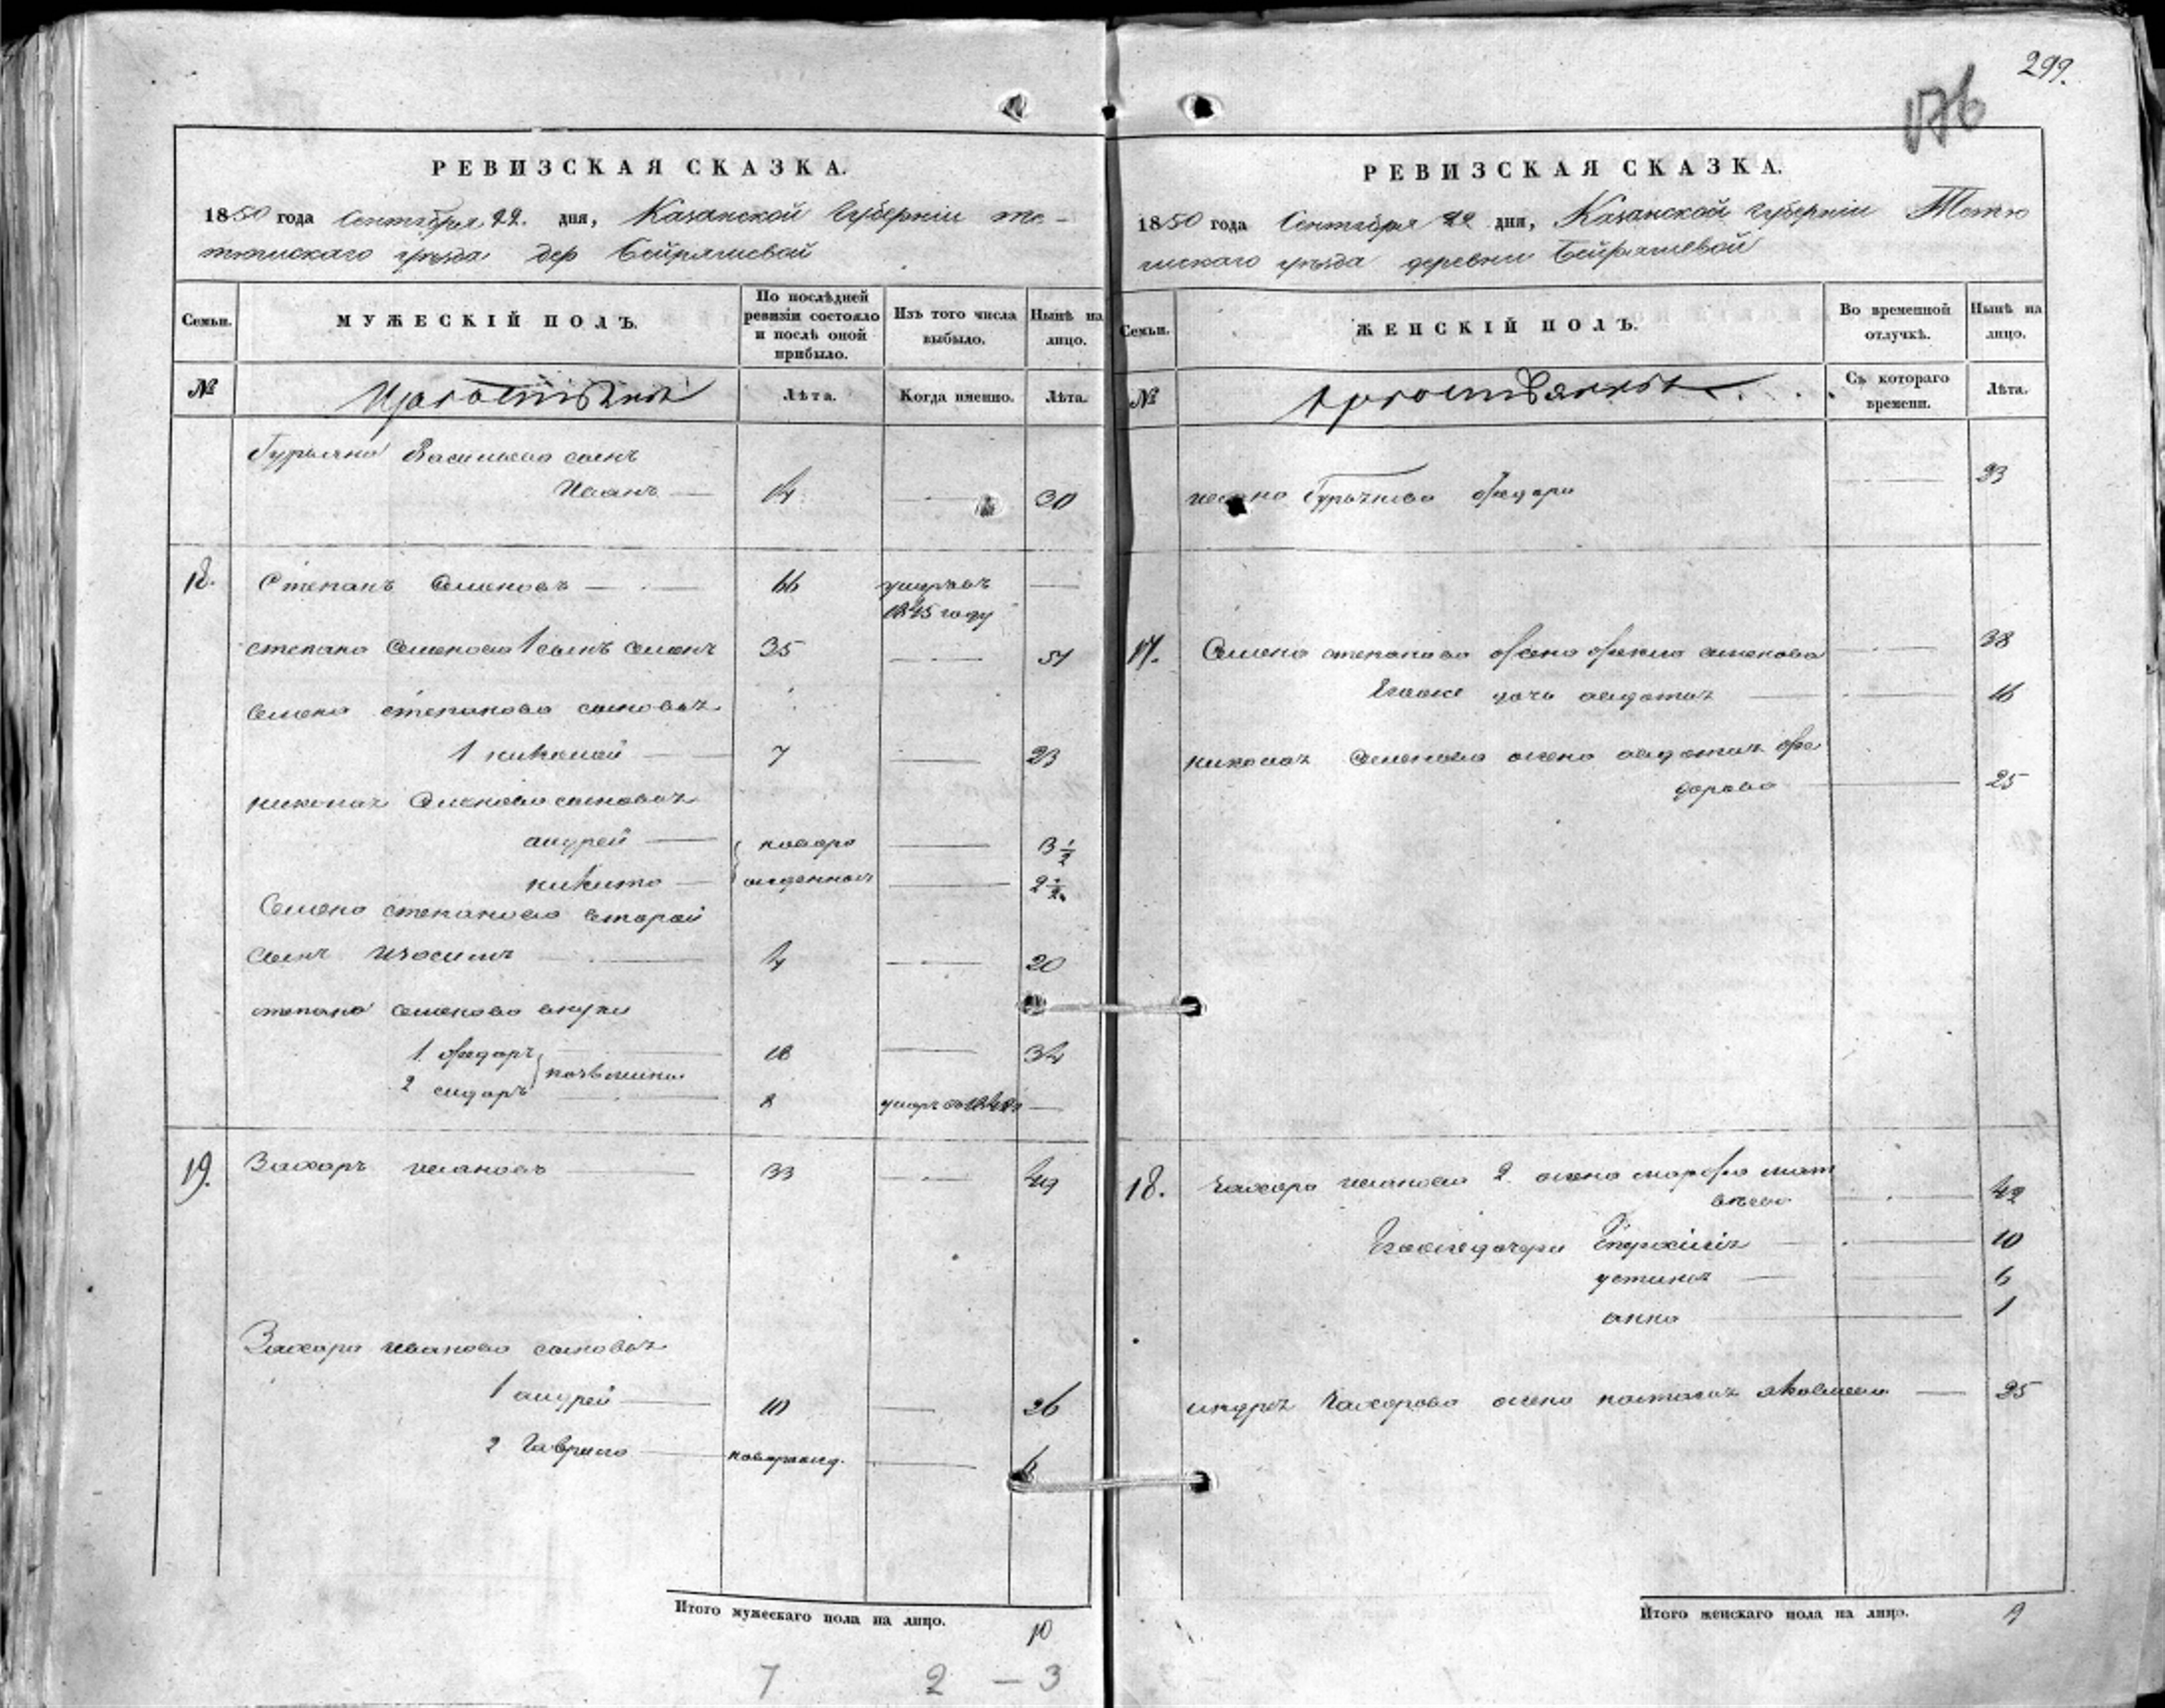 299.
176
РЕВИЗСКАЯ СКАЗКА.
1850 года Сентября 22. дня, Казанской Губерніи те-
тюшскаго уѣзда дер
МУЖЕСКІЙ ПОЛЪ.
Семьи.
По послѣдней ревизіи состояло и послѣ оной прибыло.
Изъ того числа выбыло.
Нынѣ на лицо.
№
Лѣта.
Когда именно.
Лѣта.
Гурьяна Васильева сынъ
Иванъ 14 30
18. Степанъ Семеновъ 66 умеръ въ
1845 году
степана Семенова 1 сынъ Семенъ 35 51
Семена степанова сыновья
1 николай 7 23
николая Семенова сыновья
андрей новоро 3 1/2
никита жденныя 2 1/2
Семена степанова второй
сынъ 4 20
степана Семенова внуки
1. федаръ 18 34
2 сидаръ 8
19. Захаръ ивановъ 33 49
Захара иванова сыновья
1 андрей 10 26
2 Гаврило новорожд. 6
Итого мужескаго пола на лицо. 10
7 2 — 3
РЕВИЗСКАЯ СКАЗКА.
1850 года Сентября 22 дня, Казанской Губерніи Тетю
шскаго уѣзда деревни
Семьи.
ЖЕНСКІЙ ПОЛЪ.
Во временной отлучкѣ.
Нынѣ на лицо.
№
Съ котораго времени.
Лѣта.
ивана Гурьянова 23
17. Семена степанова жена семенова 38
дочь авдотья 16
николая Семенова жена авдотья фе
дорова 25
18. Захара иванова 2. жена марфа мат
вѣева 42
10
устинья 6
анна 1
андрея Захарова жена наталья яковлева 25
Итого женскаго пола на лицо. 9